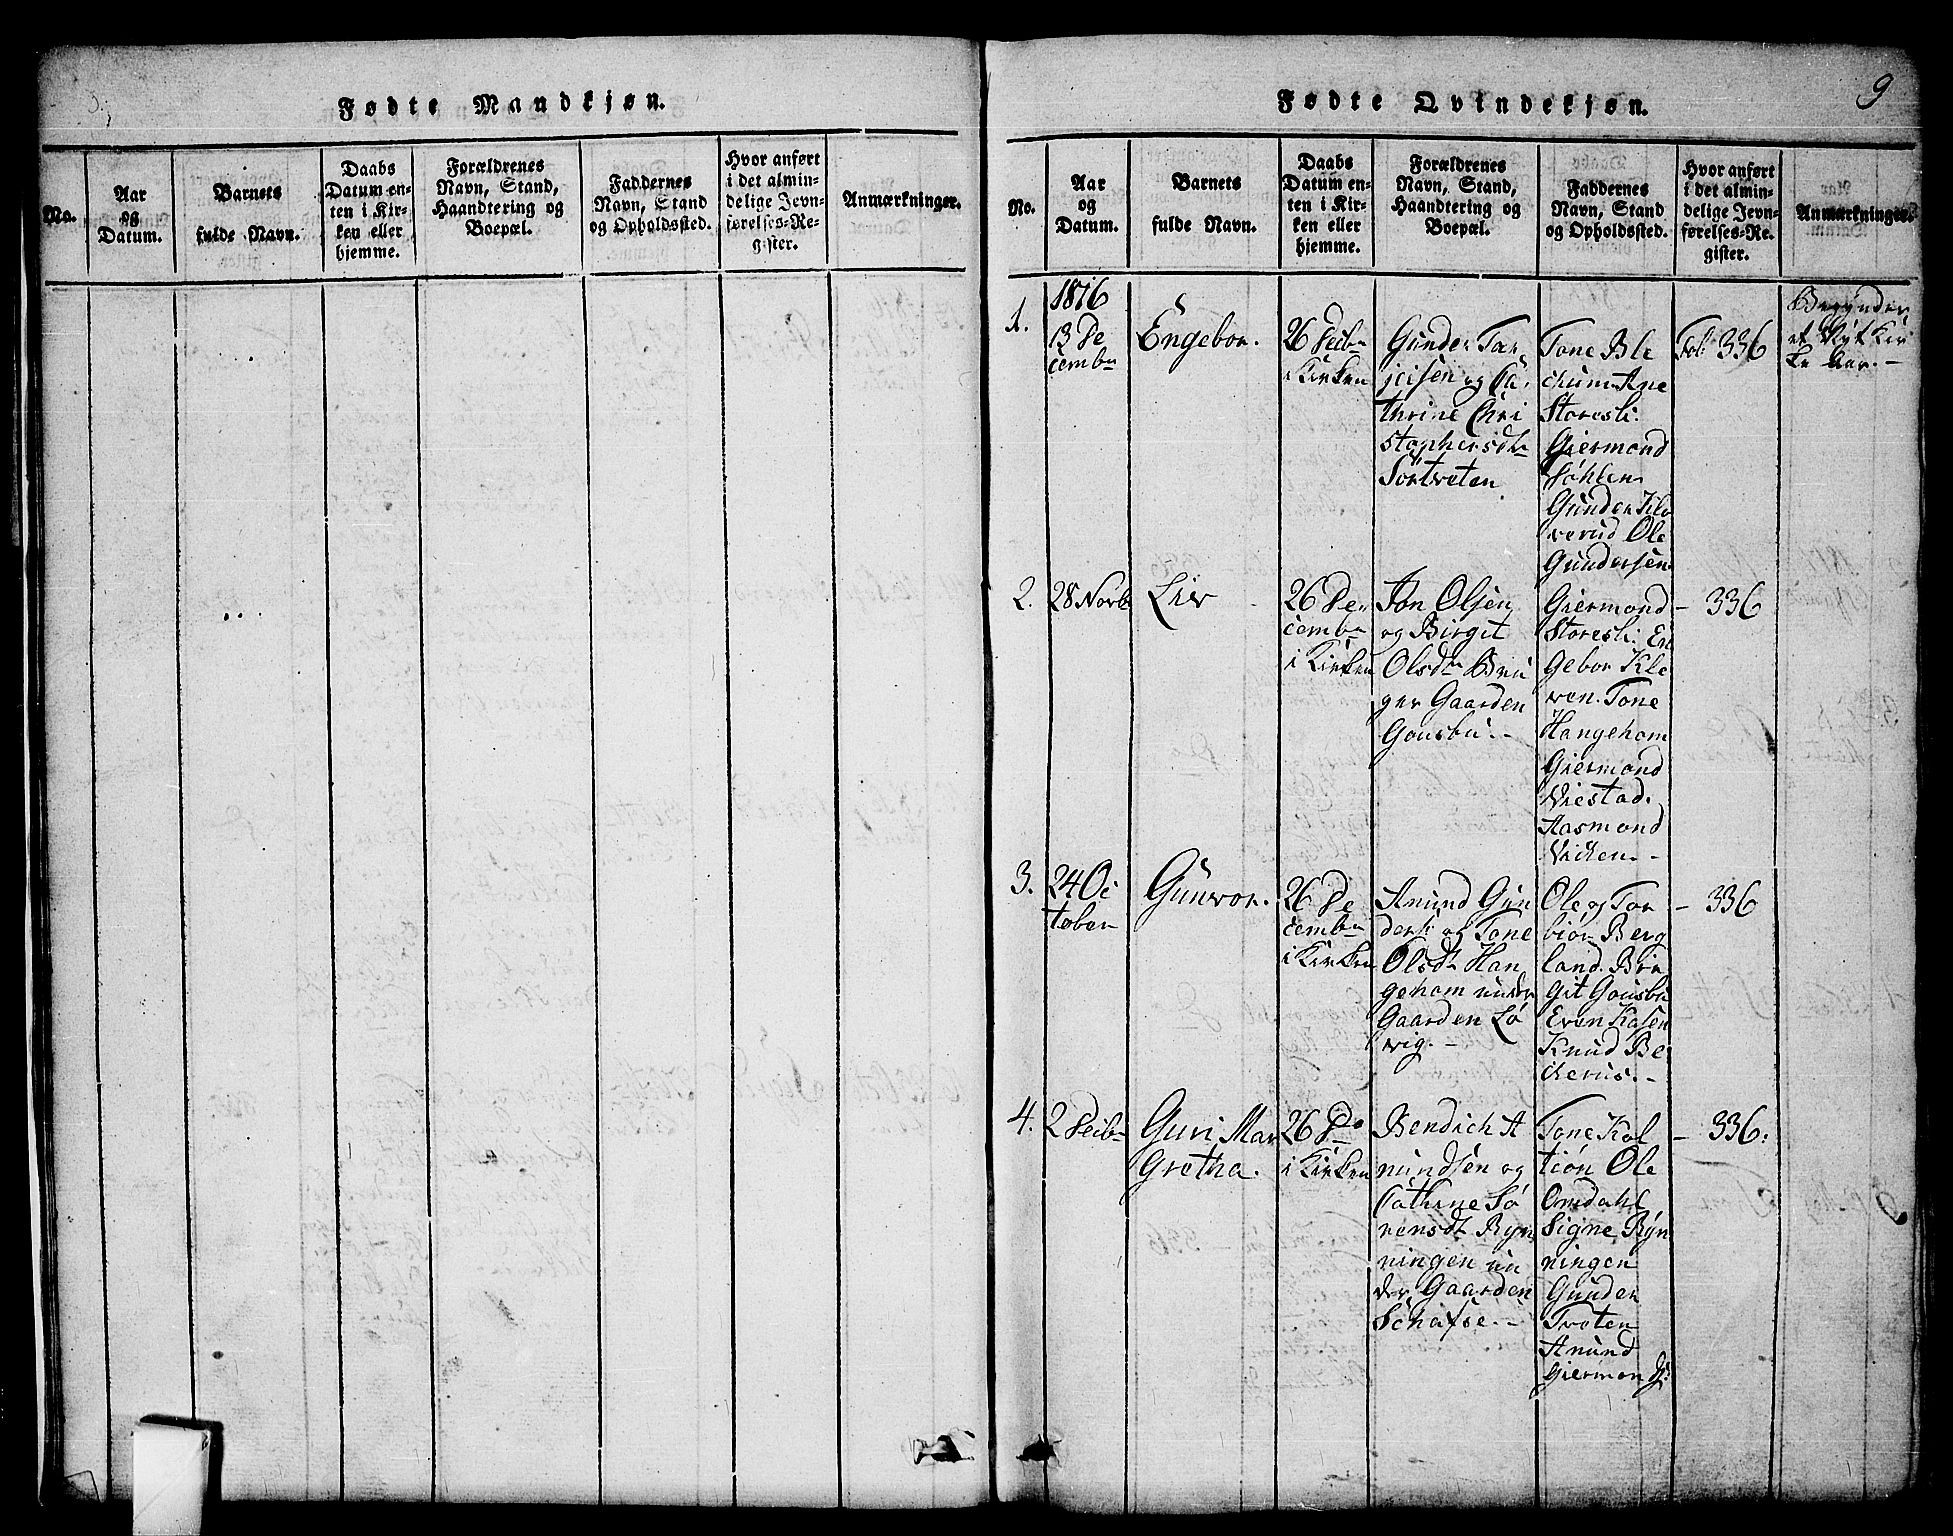 Fødte Mandkjøn.
No.
Aar
og
Datum.
Barnets
fulde Navn.
Daabs
Datum en-
ten i Kir-
ken eller
hjemme.
Forældrenes
Navn, Stand,
Haandtering og
Boepæl.
Faddernes
Navn, Stand
og Opholdssted.
Hvor anført
i det almin-
delige Jevn-
førelses-Re-
gister.
Anmærkninger.
9
Fødte Qvindekjøn.
No.
Aar
og
Datum.
Barnets
fulde Navn.
Daabs
Datum en-
ten i Kir-
ken eller
hjemme.
Forældrenes
Navn, Stand,
Haandtering og
Boepæl.
Faddernes
Navn, Stand
og Opholdssted.
Hvor anført
i det almin-
delige Jevn-
førelses-Re-
gister.
Anmærkninger.
1.
1816
13 De
cembr
Engebor.
26 Decbr
i Kirken
Gunder Tar
jeisen og Ca
thrine Chri
stophersdtr
Sortveten
Tone Ble
chum Ane
Storesli
Giermond
Høhlen
Gunder Klo
verud Ole
Gundersen
Fol: 336
Begynder
et Nyt Kir
ke Aar.-
2.
28 Novb
Liv
26 De
cembr
i Kirken
Jon Olsen
og Birgit
Olsdtr Bru
ger Gaarden
Gousbu.-
Giermond
Storesli En
gebor Kle
ven. Tone
Hangehom
Giermond
Viestad.
Aasmond
Vicken.-
- 336
3.
24 Oc
tober
Gunvor.
26 De
cembr
i Kirken
Anund Gun
ders: og Tone
Olsdtr Han
gehom under
Gaarden Lø
vig.-
Ole og Tor
biør Berg
land. Bir
git Gousbu
Even Kasen
Knud Be
cherus.-
- 336
4.
2 Decbr
Guri Mar
gretha.
26 De
i Kirken
Bendich A
nundsen og
Cathrine Sø
rensdt Ryn
ningen un
der Gaarden
Schafse.-
Tone Kol
tiøn Ole
Omdahl
Signe Ryn
ningen
Gunder
Tveten
Anund
Giermonds:
- 336.